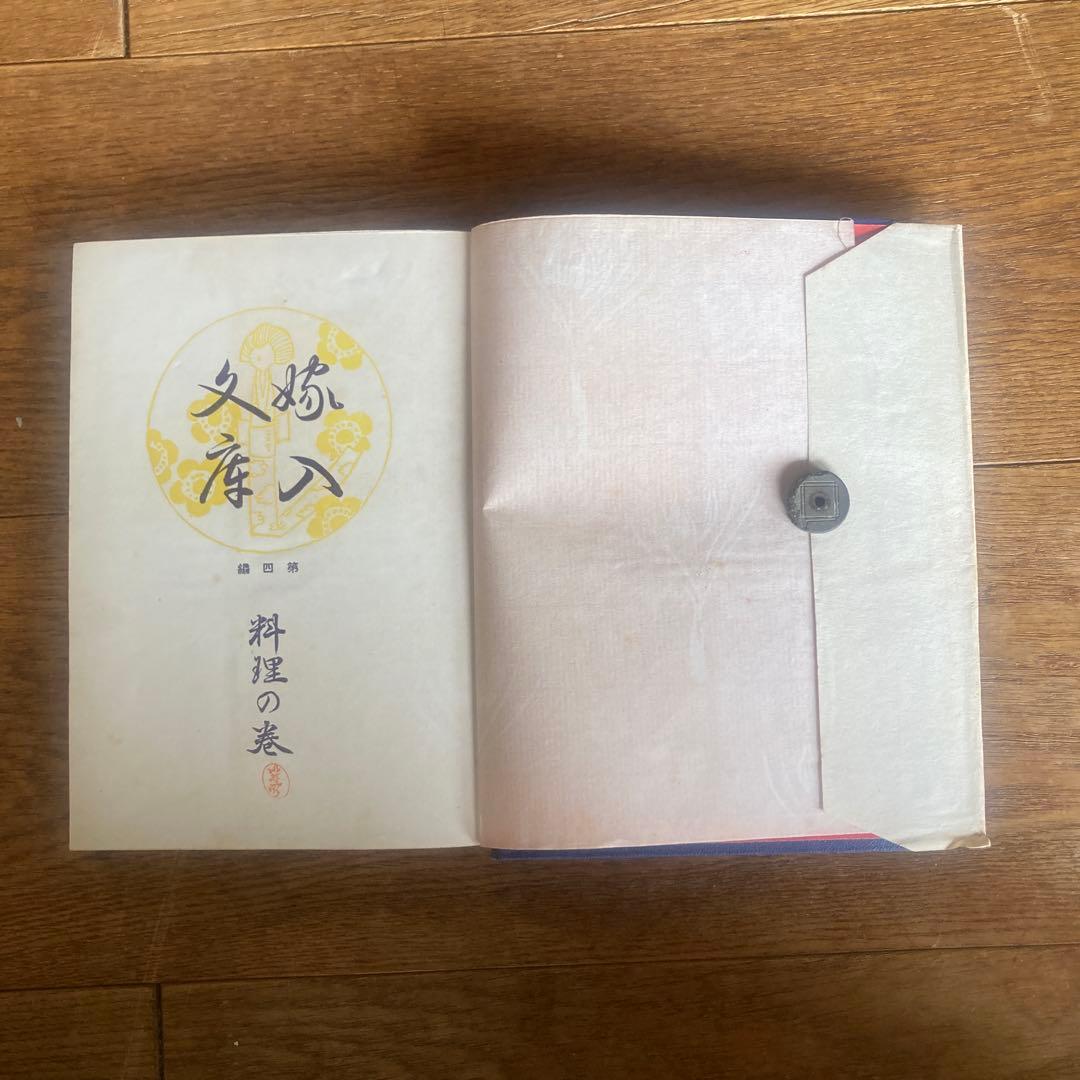 嫁入
文庫
第四編
料理の巻